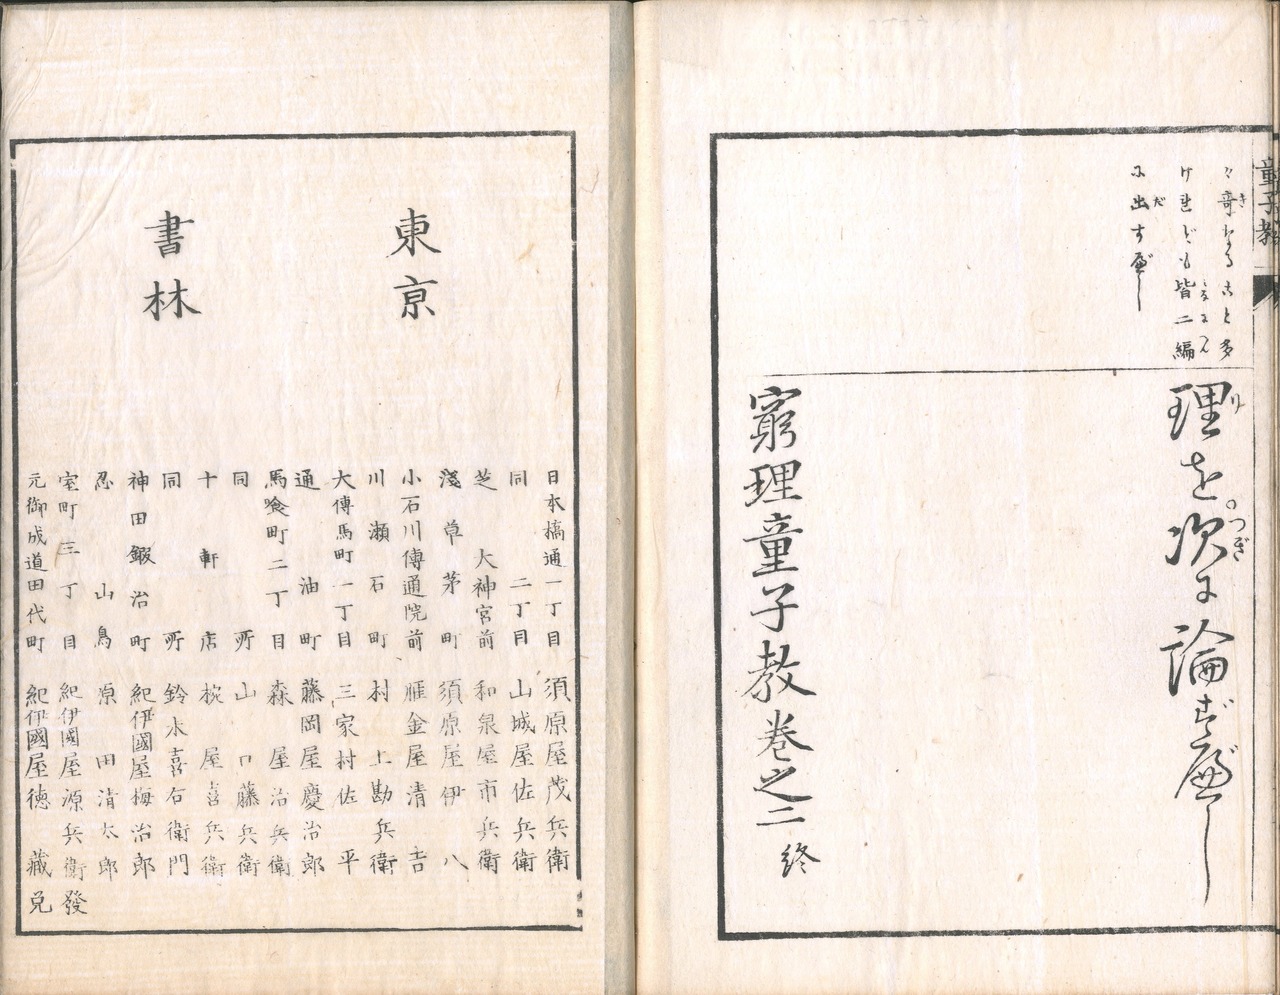 童子教
々奇なること多
けれども皆二編
に出すべし
理を次に論ずべし
窮理童子教巻之二終
東京
書林
日本橋通一丁目 須原屋茂兵衛
同 二丁目 山城屋佐兵衛
芝大神宮前 和泉屋市兵衛
淺草茅町 須原屋伊八
小石川傳通院前 雁金屋清吉
川瀬石町 村上勘兵衛
大傳馬町一丁目 三家村佐平
通油町 藤岡屋慶治郎
馬喰町二丁目 森屋治兵衛
同所 山口藤兵衛
十軒店 椀屋喜兵衛
同所 鈴木喜右衛門
神田鍜治町 紀伊國屋梅治郎
忍山鳥 原田清太郎
室町三丁目 紀伊國屋源兵衛發
元御成道田代町 紀伊國屋徳藏兌